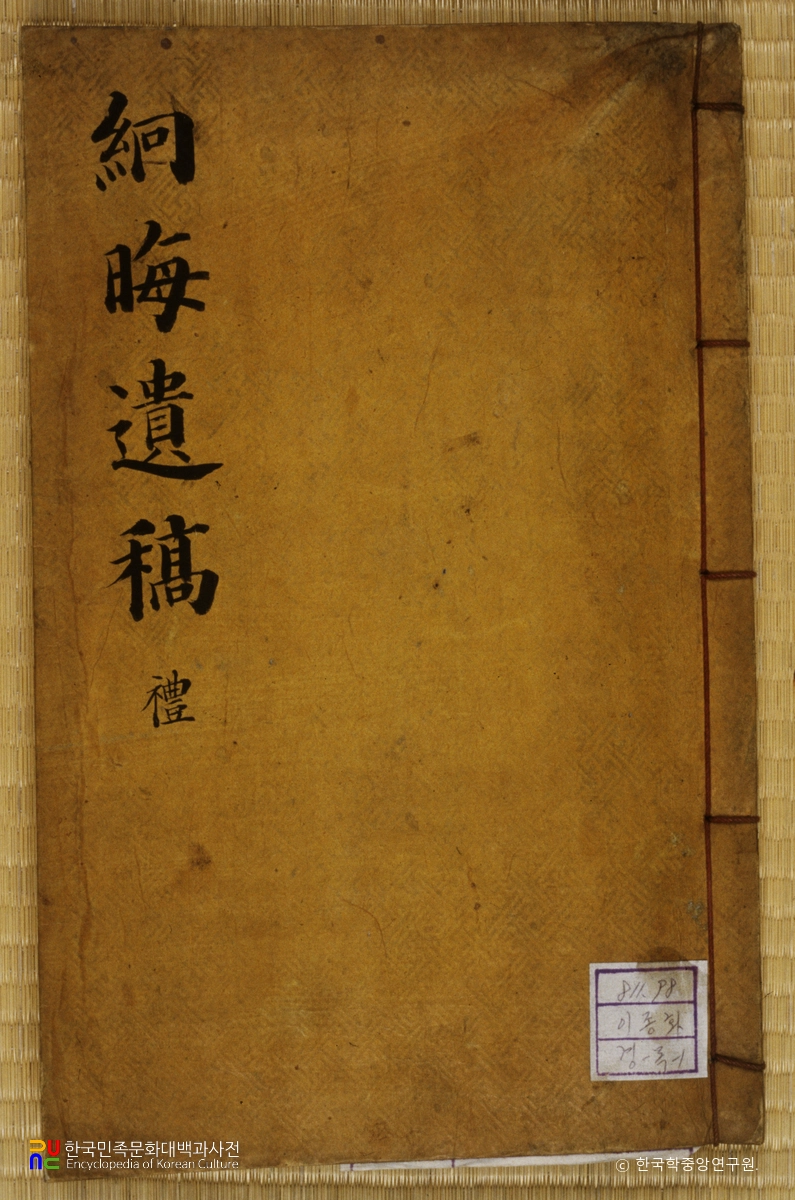 絅晦遺稿
禮
811.98
이종화
경-
한국민족문화대백과사전
Encyclopedia of Korean Culture
© 한국학중앙연구원.